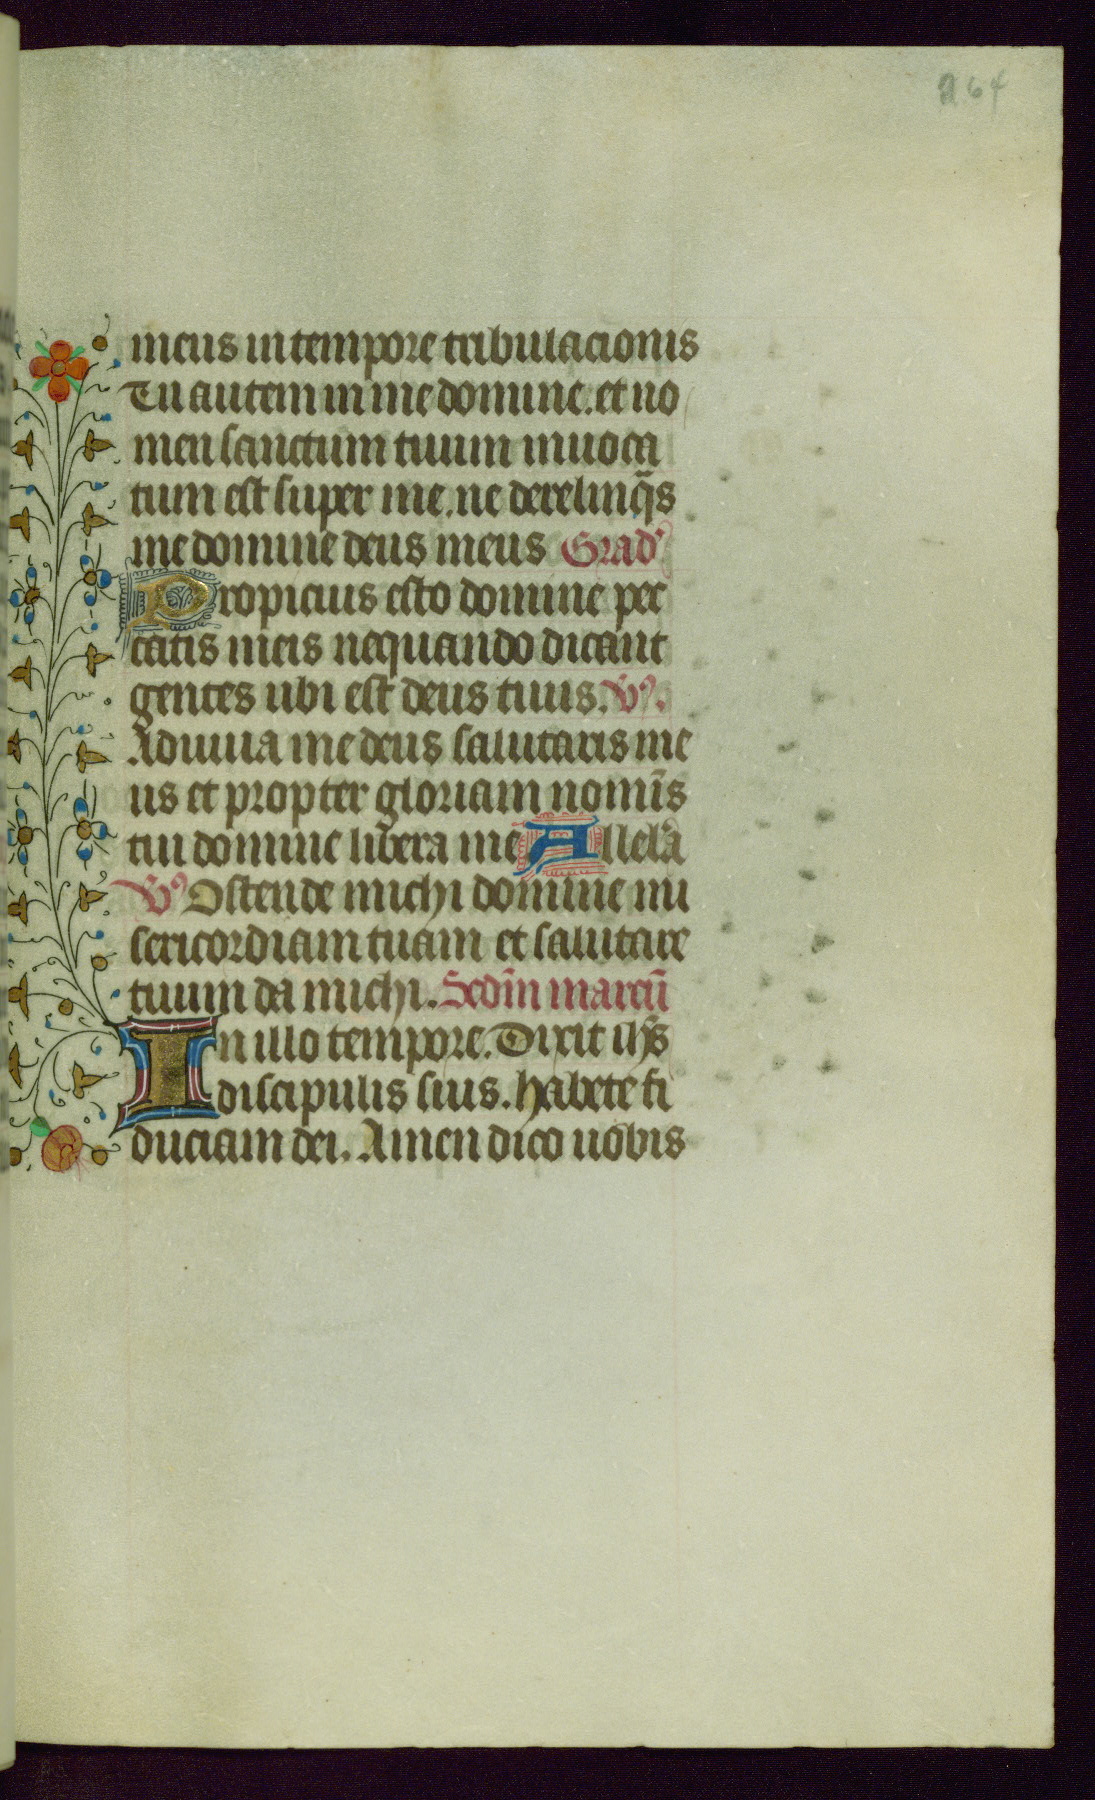 264
meus in tempore tribulacionis
Tu autem in me domine. et no
men sanctum tuum inuoca
tum est super me. ne derelinq̄s
me domine deus meus Grad'
Propicius esto domine pec
catis meis nequando dicant
gentes ubi est deus tuus. V̉.
Adiuua me deus salutaris me
us et propter gloriam nomīs
tui domine libera me Allela
V̉ Ostende michi domine mi
sericordiam tuam et salutare
tuum da michi. Secd̄m marcū
In illo tempore. Dixit ih̄s
discipulis suis. habete fi
duciam dei. Amen dico uobis